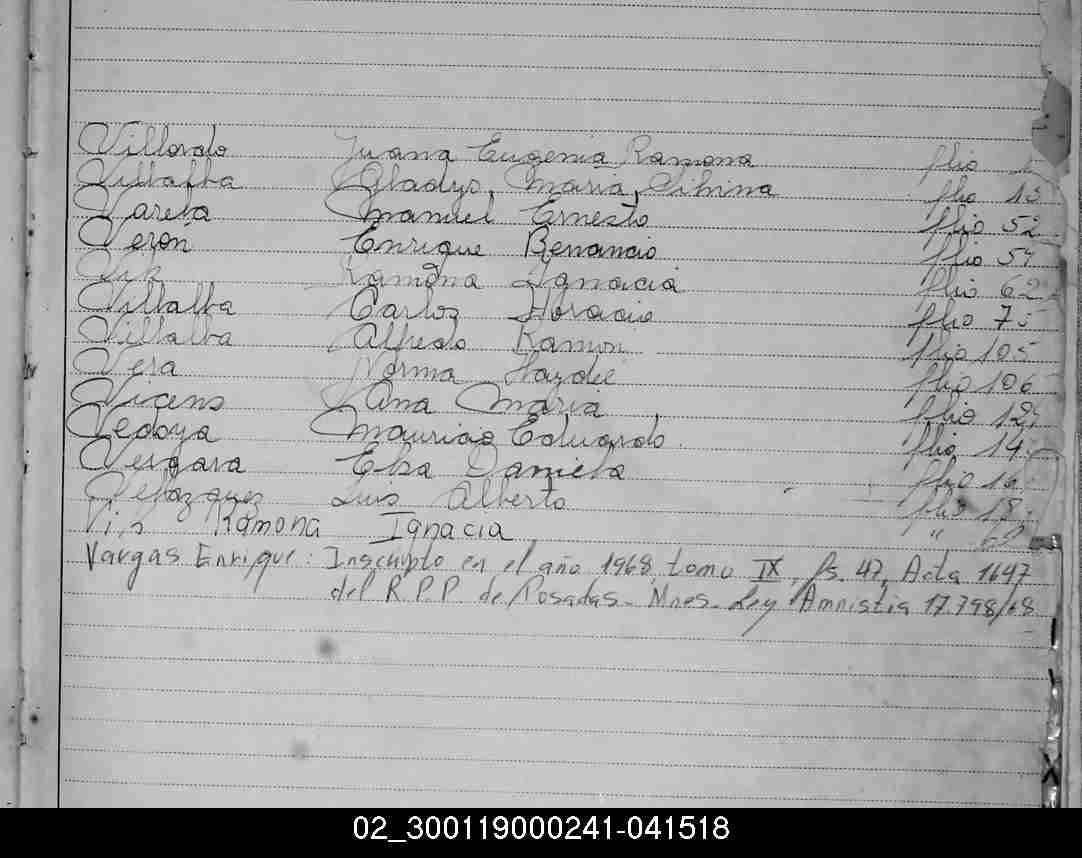 Villordo Juana Eugenia Ramona flio
Villalba Gladys, Maria, Silvina flio 13
Varela Manuel Ernesto flio 52
Verón Enrique Benancio flio 57
Ramona Ignacia flio 62
Villalba Carlos Horacio flio 75
Villalba Alfredo Ramon flio 105
Vera Norma Haydee flio 106
Vicens Ana Maria flio 12
Vedoya Mauricio Eduardo. flio 14
Vergara Elsa Daniela flio 16
Velazquez Luis Alberto flio 18
Ramona Ignacia "
Vargas Enrique: Inscripto en el año 1968, tomo IX, fs. 47, Acta 1697
del R.P.P. de Posadas - Mnes. Ley Amnistia 17.798/68
X
02_300119000241-041518